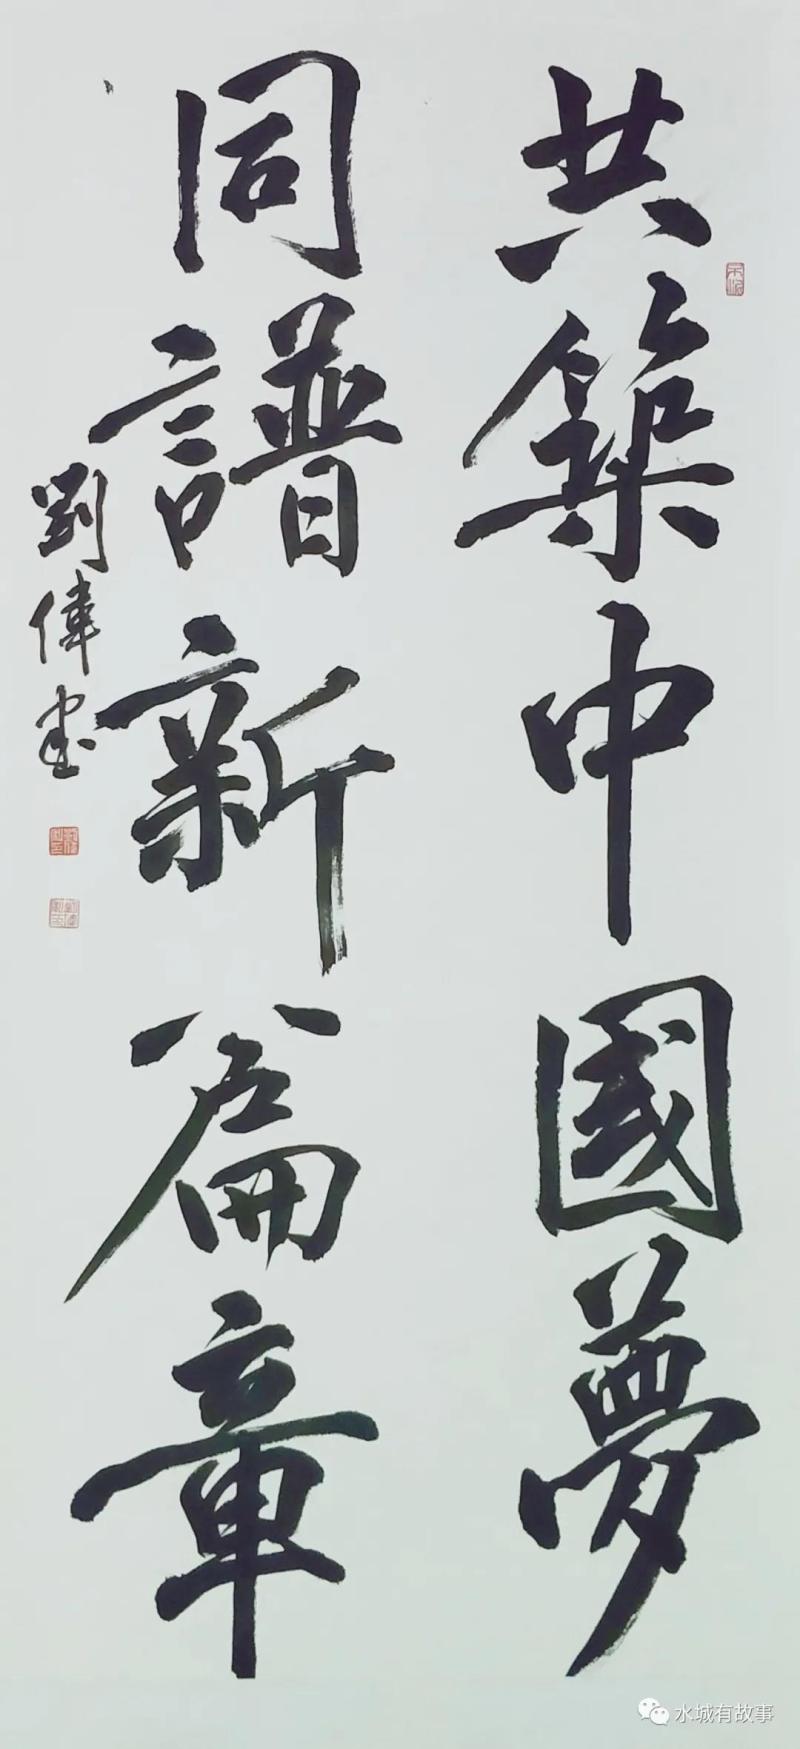 共築中國夢
同譜新篇章
劉偉书
水城有故事